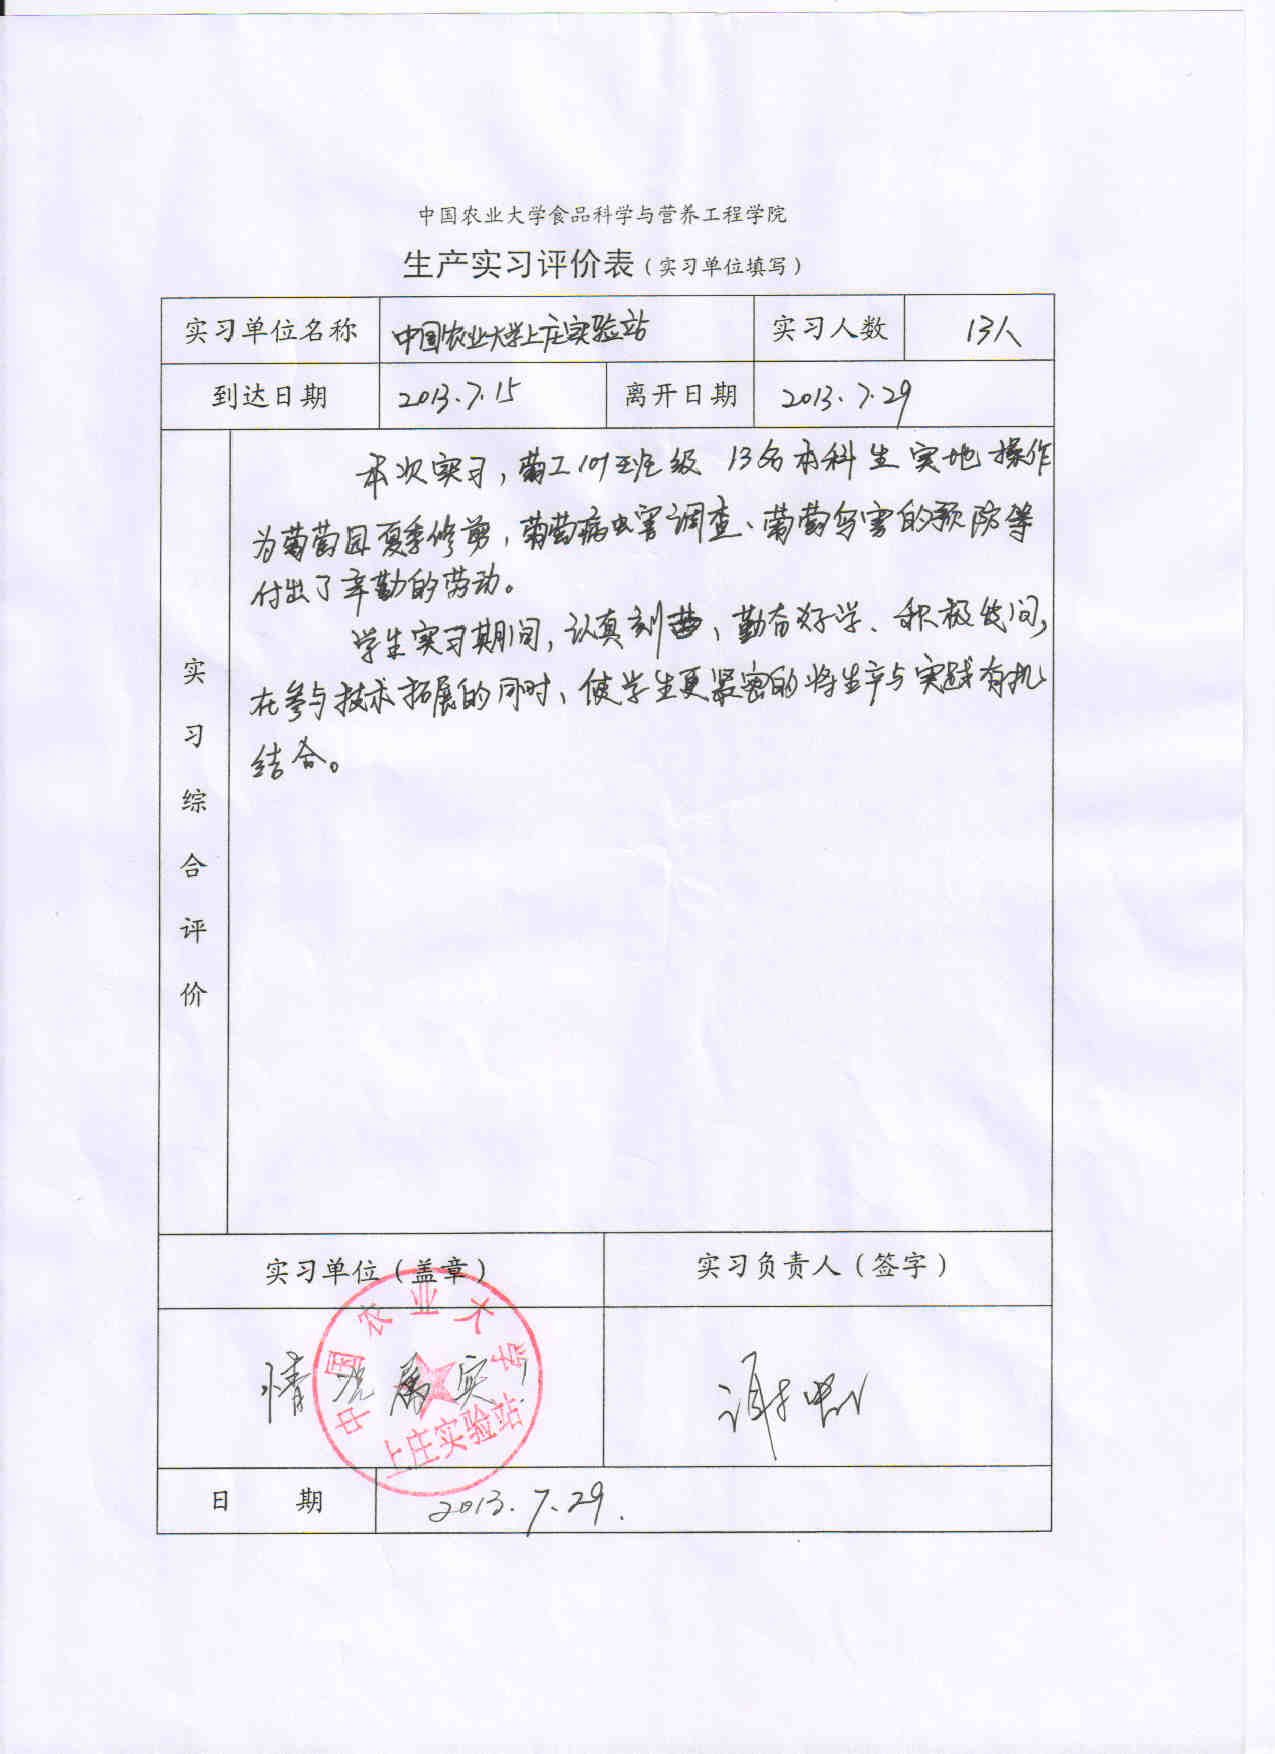 中国农业大学食品科学与营养工程学院
生产实习评价表（实习单位填写）
实习单位名称 中国农业大学上庄实验站 实习人数 13人
到达日期 2013.7.15 离开日期 2013.7.29
实习综合评价
本次实习，葡工101班级 13名本科生实地操作
为葡萄园夏季修剪，葡萄病虫害调查、葡萄鸟害的预防等
付出了辛勤的劳动。
学生实习期间，认真刻苦、勤奋好学、积极发问，
在参与技术拓展的同时、使学生更紧密的将生产与实践有机
结合。
实习单位（盖章） 实习负责人（签字）
中国农业大学
上庄实验站
情况属实！
日 期 2013.7.29.